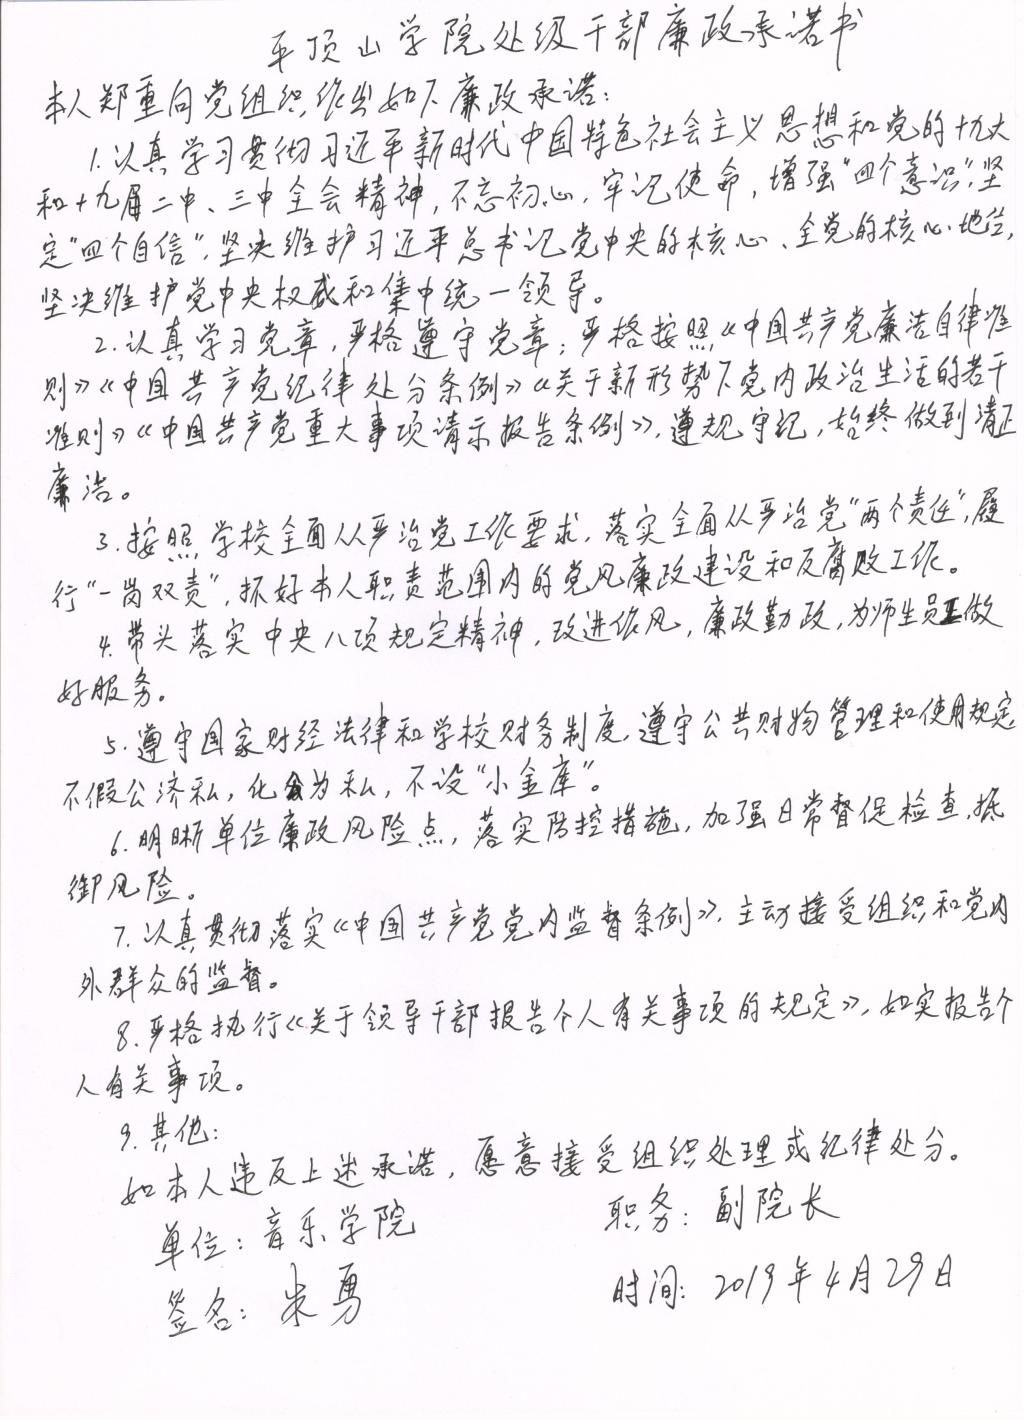 平顶山学院处级干部廉政承诺书
本人郑重向党组织作出如下廉政承诺：
1.认真学习贯彻习近平新时代中国特色社会主义思想和党的十九大
和十九届二中、三中全会精神，不忘初心，牢记使命，增强“四个意识”，坚
定“四个自信”，坚决维护习近平总书记党中央的核心、全党的核心地位，
坚决维护党中央权威和集中统一领导。
2.认真学习党章，严格遵守党章；严格按照《中国共产党廉洁自律准
则》《中国共产党纪律处分条例》《关于新形势下党内政治生活的若干
准则》《中国共产党重大事项请示报告条例》，遵规守纪，始终做到清正
廉洁。
3.按照学校全面从严治党工作要求，落实全面从严治党“两个责任”，履
行“一岗双责”，抓好本人职责范围内的党风廉政建设和反腐败工作。
4.带头落实中央八项规定精神，改进作风，廉政勤政，为师生员工做
好服务。
5.遵守国家财经法律和学校财务制度，遵守公共财物管理和使用规定，
不假公济私，化公为私，不设“小金库”。
6.明晰单位廉政风险点，落实防控措施，加强日常督促检查，抵
御风险。
7.认真贯彻落实《中国共产党党内监督条例》，主动接受组织和党内
外群众的监督。
8.严格执行《关于领导干部报告个人有关事项的规定》，如实报告个
人有关事项。
9.其他：
如本人违反上述承诺，愿意接受组织处理或纪律处分。
单位：音乐学院 职务：副院长
签名：朱勇 时间：2019年4月29日